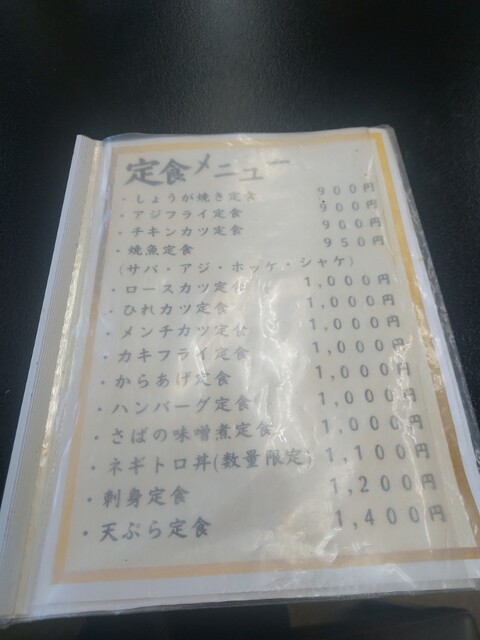 定食メニュー
・しょうが焼き定食 900円
・アジフライ定食 900円
・チキンカツ定食 900円
・焼魚定食 950円
(サバ・アジ・ホッケ・シャケ)
・ロースカツ定食 1,000円
・ひれカツ定食 1,000円
・メンチカツ定食 1,000円
・カキフライ定食 1,000円
・からあげ定食 1,000円
・ハンバーグ定食 1,000円
・さばの味噌煮定食 1,000円
・ネギトロ丼(数量限定) 1,100円
・刺身定食 1,200円
・天ぷら定食 1,400円